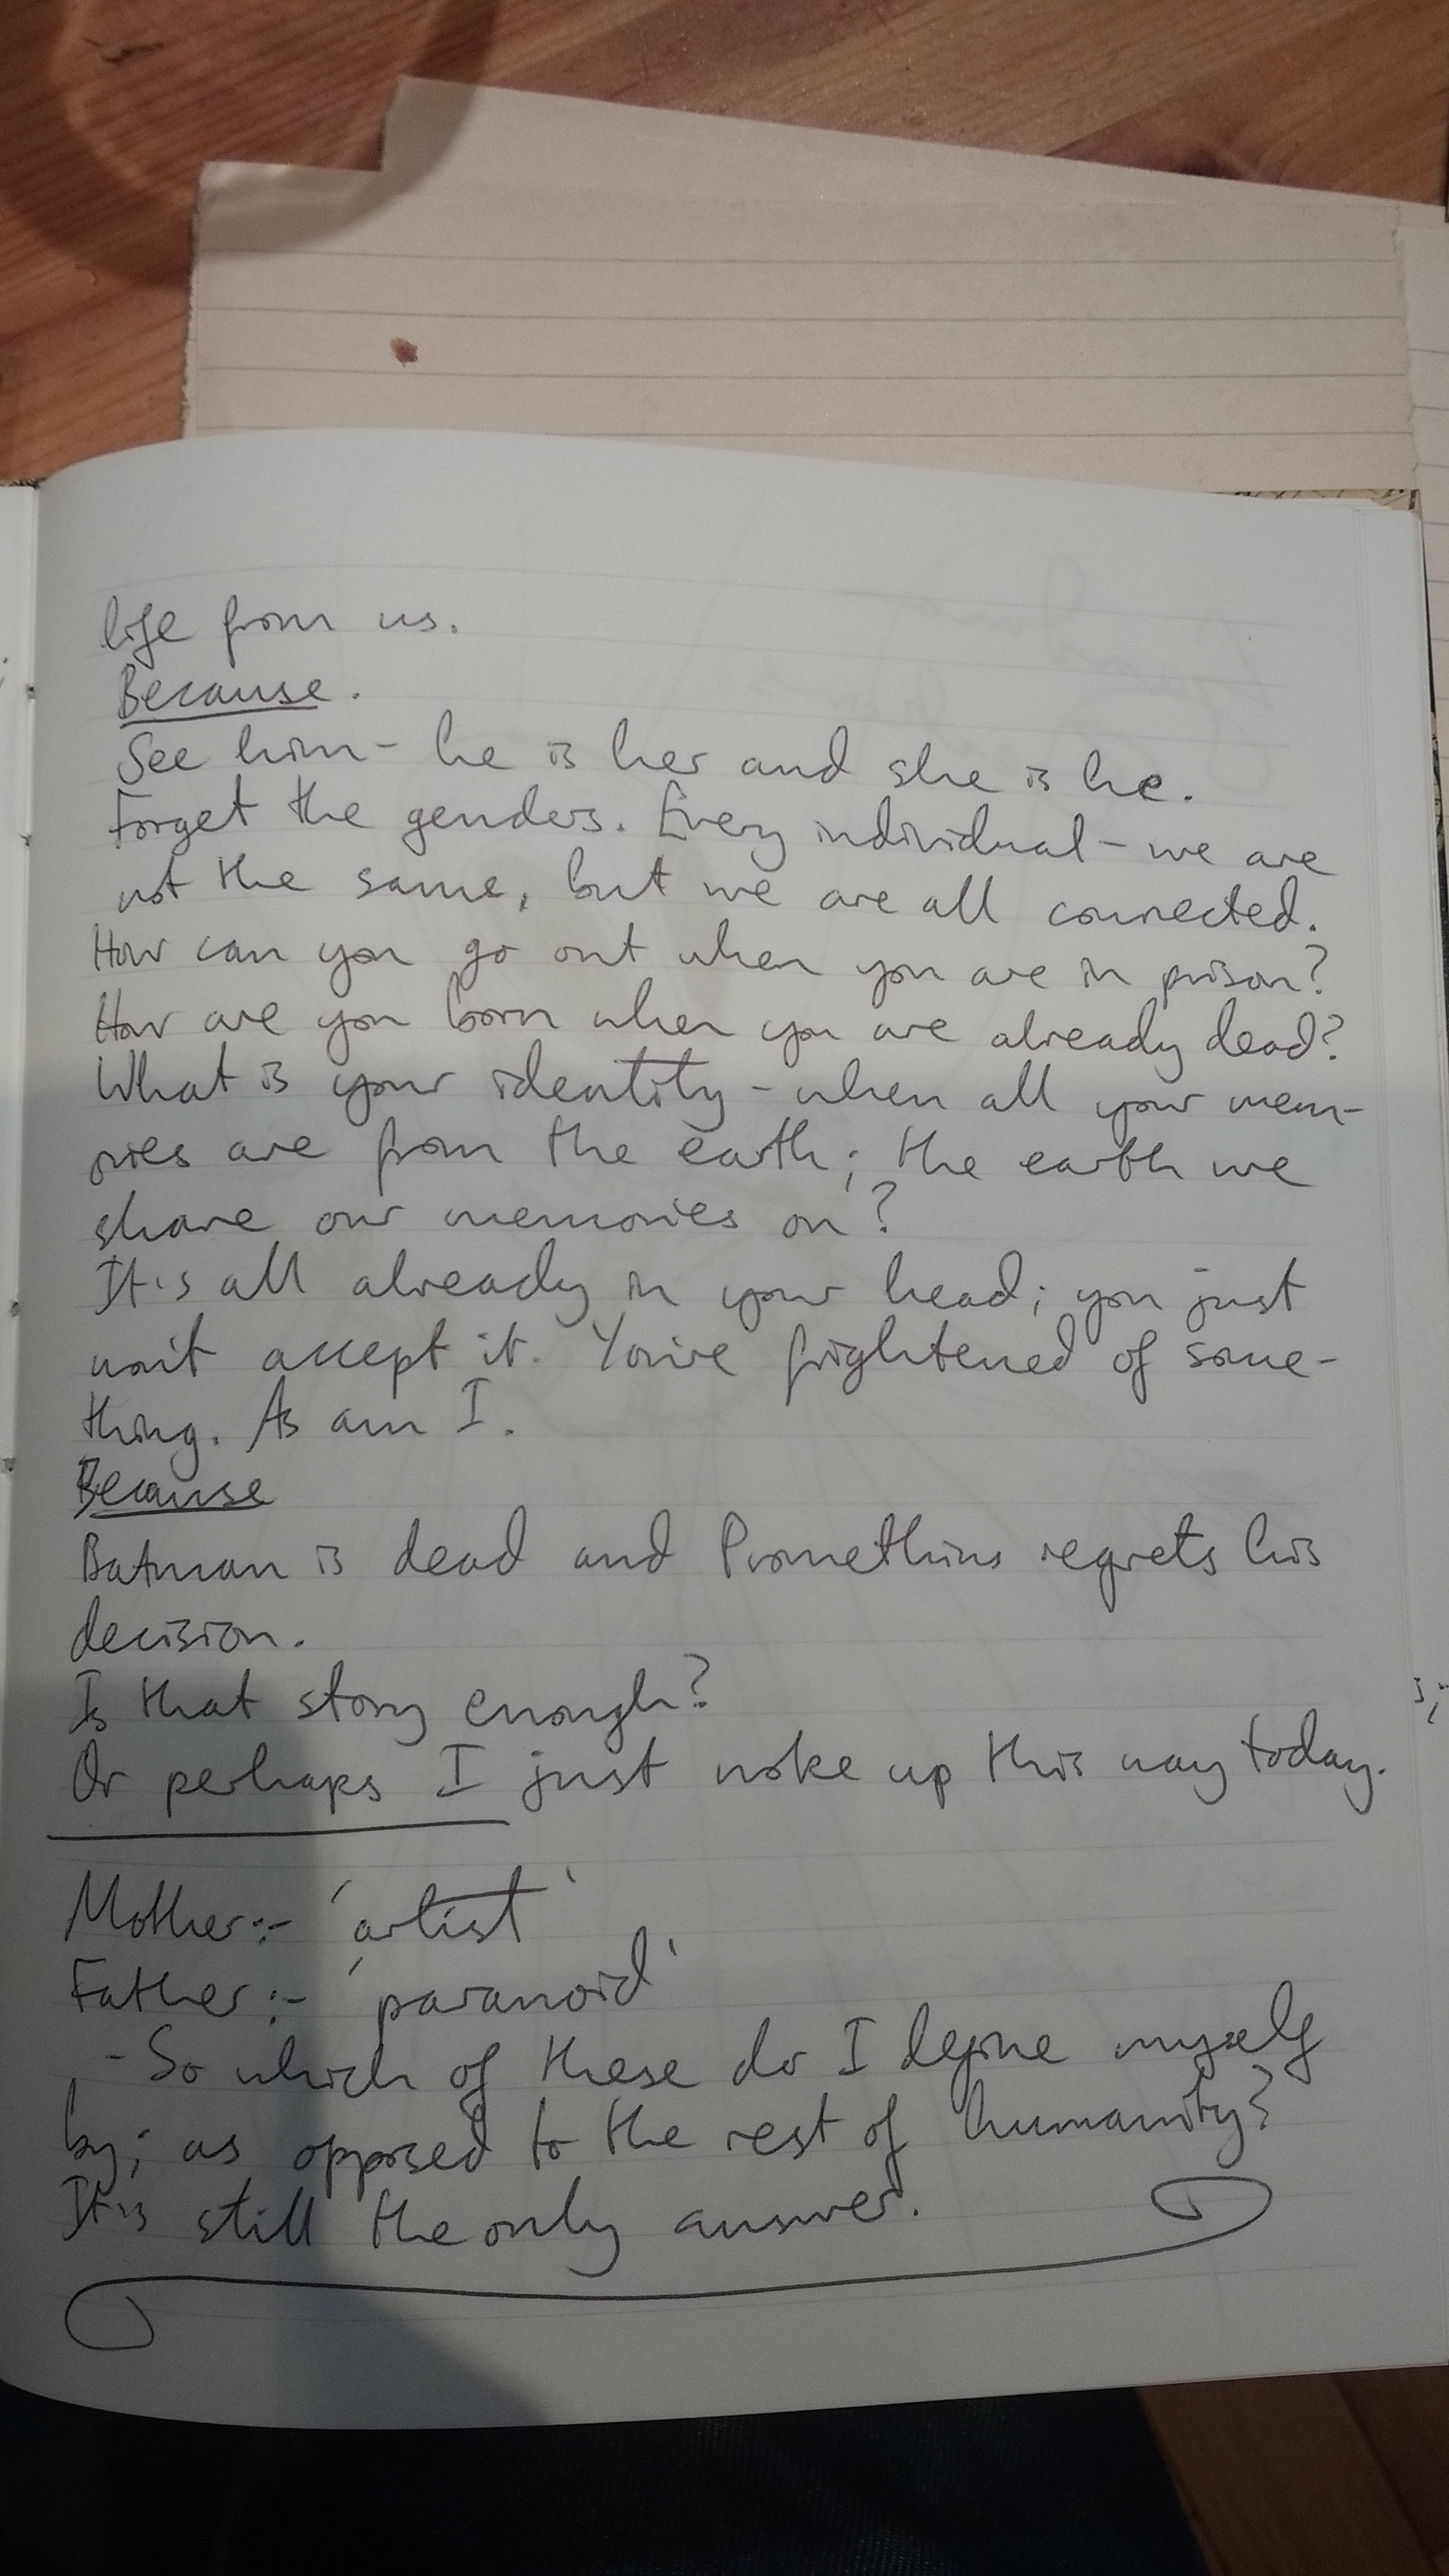 life from us.
Because.
See him - he is her and she is he.
Forget the genders. Every individual - we are
not the same, but we are all connected.
How can you go out when you are in prison?
How are you born when you are already dead?
What is your identity - when all your mem-
ories are from the earth; the earth we
share our memories on?
It's all already in your head; you just
won't accept it. You're frightened of some-
thing. As am I.
Because
Batman is dead and Prometheus regrets his
decision.
Is that story enough?
Or perhaps I just woke up this way today.
Mother:- 'artist'
Father:- 'paranoid'
- So which of these do I define myself
by; as opposed to the rest of humanity?
It's still the only answer.